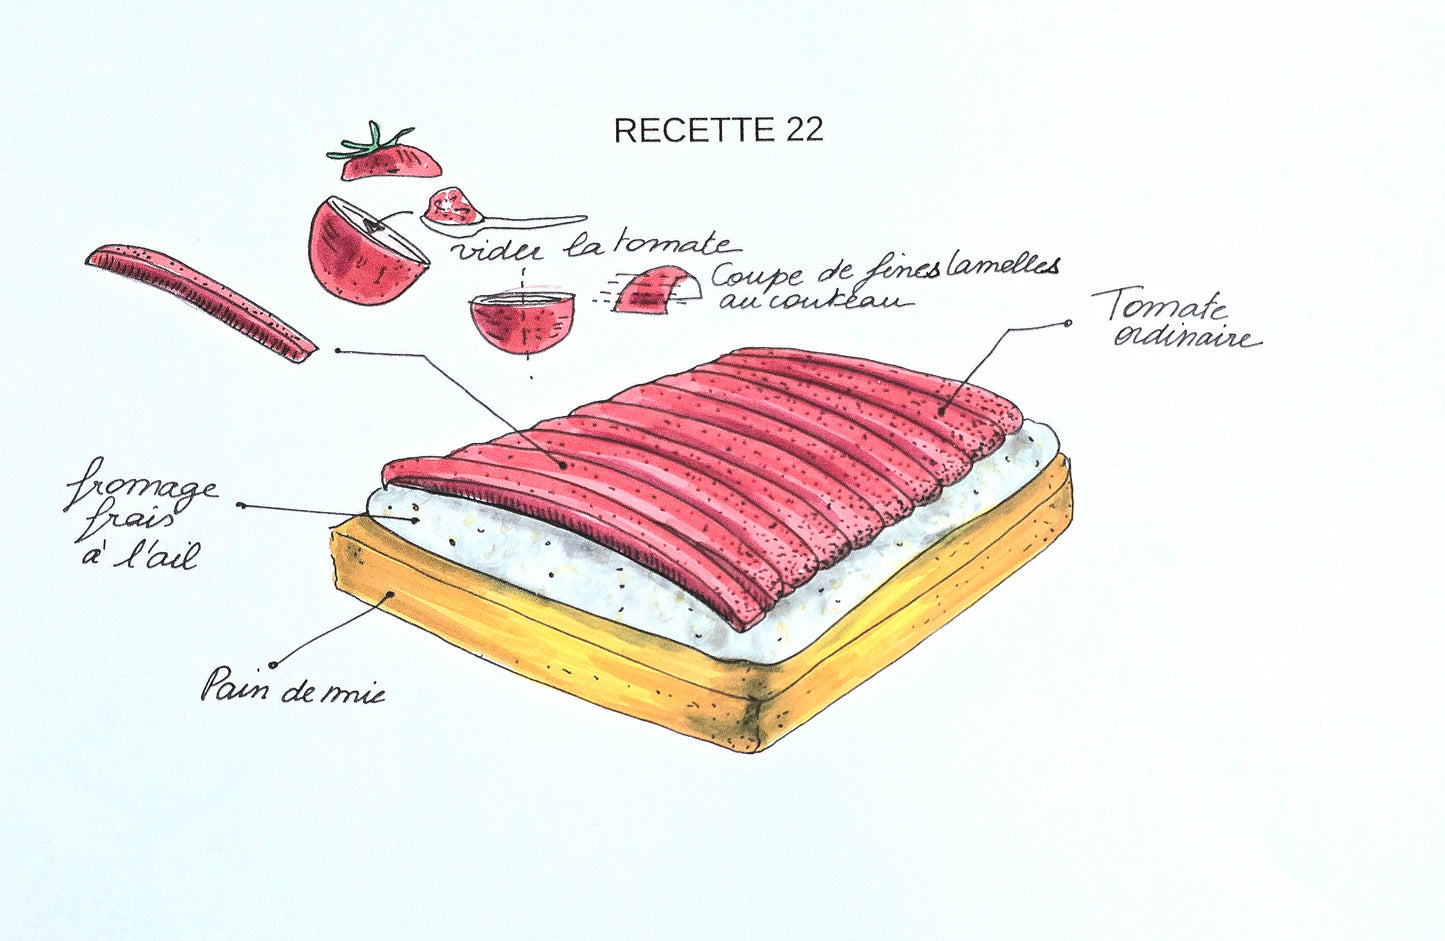 RECETTE 22
vider la tomate
Coupe de fines lamelles
au couteau
Tomate
ordinaire
fromage
frais
à l'ail
Pain de mie